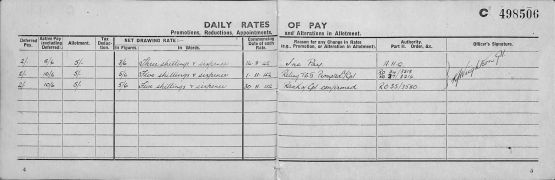 C 498506
DAILY RATES OF PAY
Promotions, Reductions, Appointments, and Alterations in Allotment.
Deferred Pay. Active Pay (excluding Deferred) Allotment. Tax Deduction. NET DRAWING RATE:— In Figures. In Words. Commencing Date of such Rate. Reason for any Change in Rates (e.g., Promotion, or Alteration in Allotment). Authority. Part II. Order, &c. Officer's Signature.
2/- 5/- 3/6 Three shillings & sixpence Inc Pay
2/- 10/6 5/- 5/6 Five shillings & sixpence
2/- 10/6 5/- 5/6 Five shillings & sixpence Rank of Cpl confirmed RO 35/3580
4 5